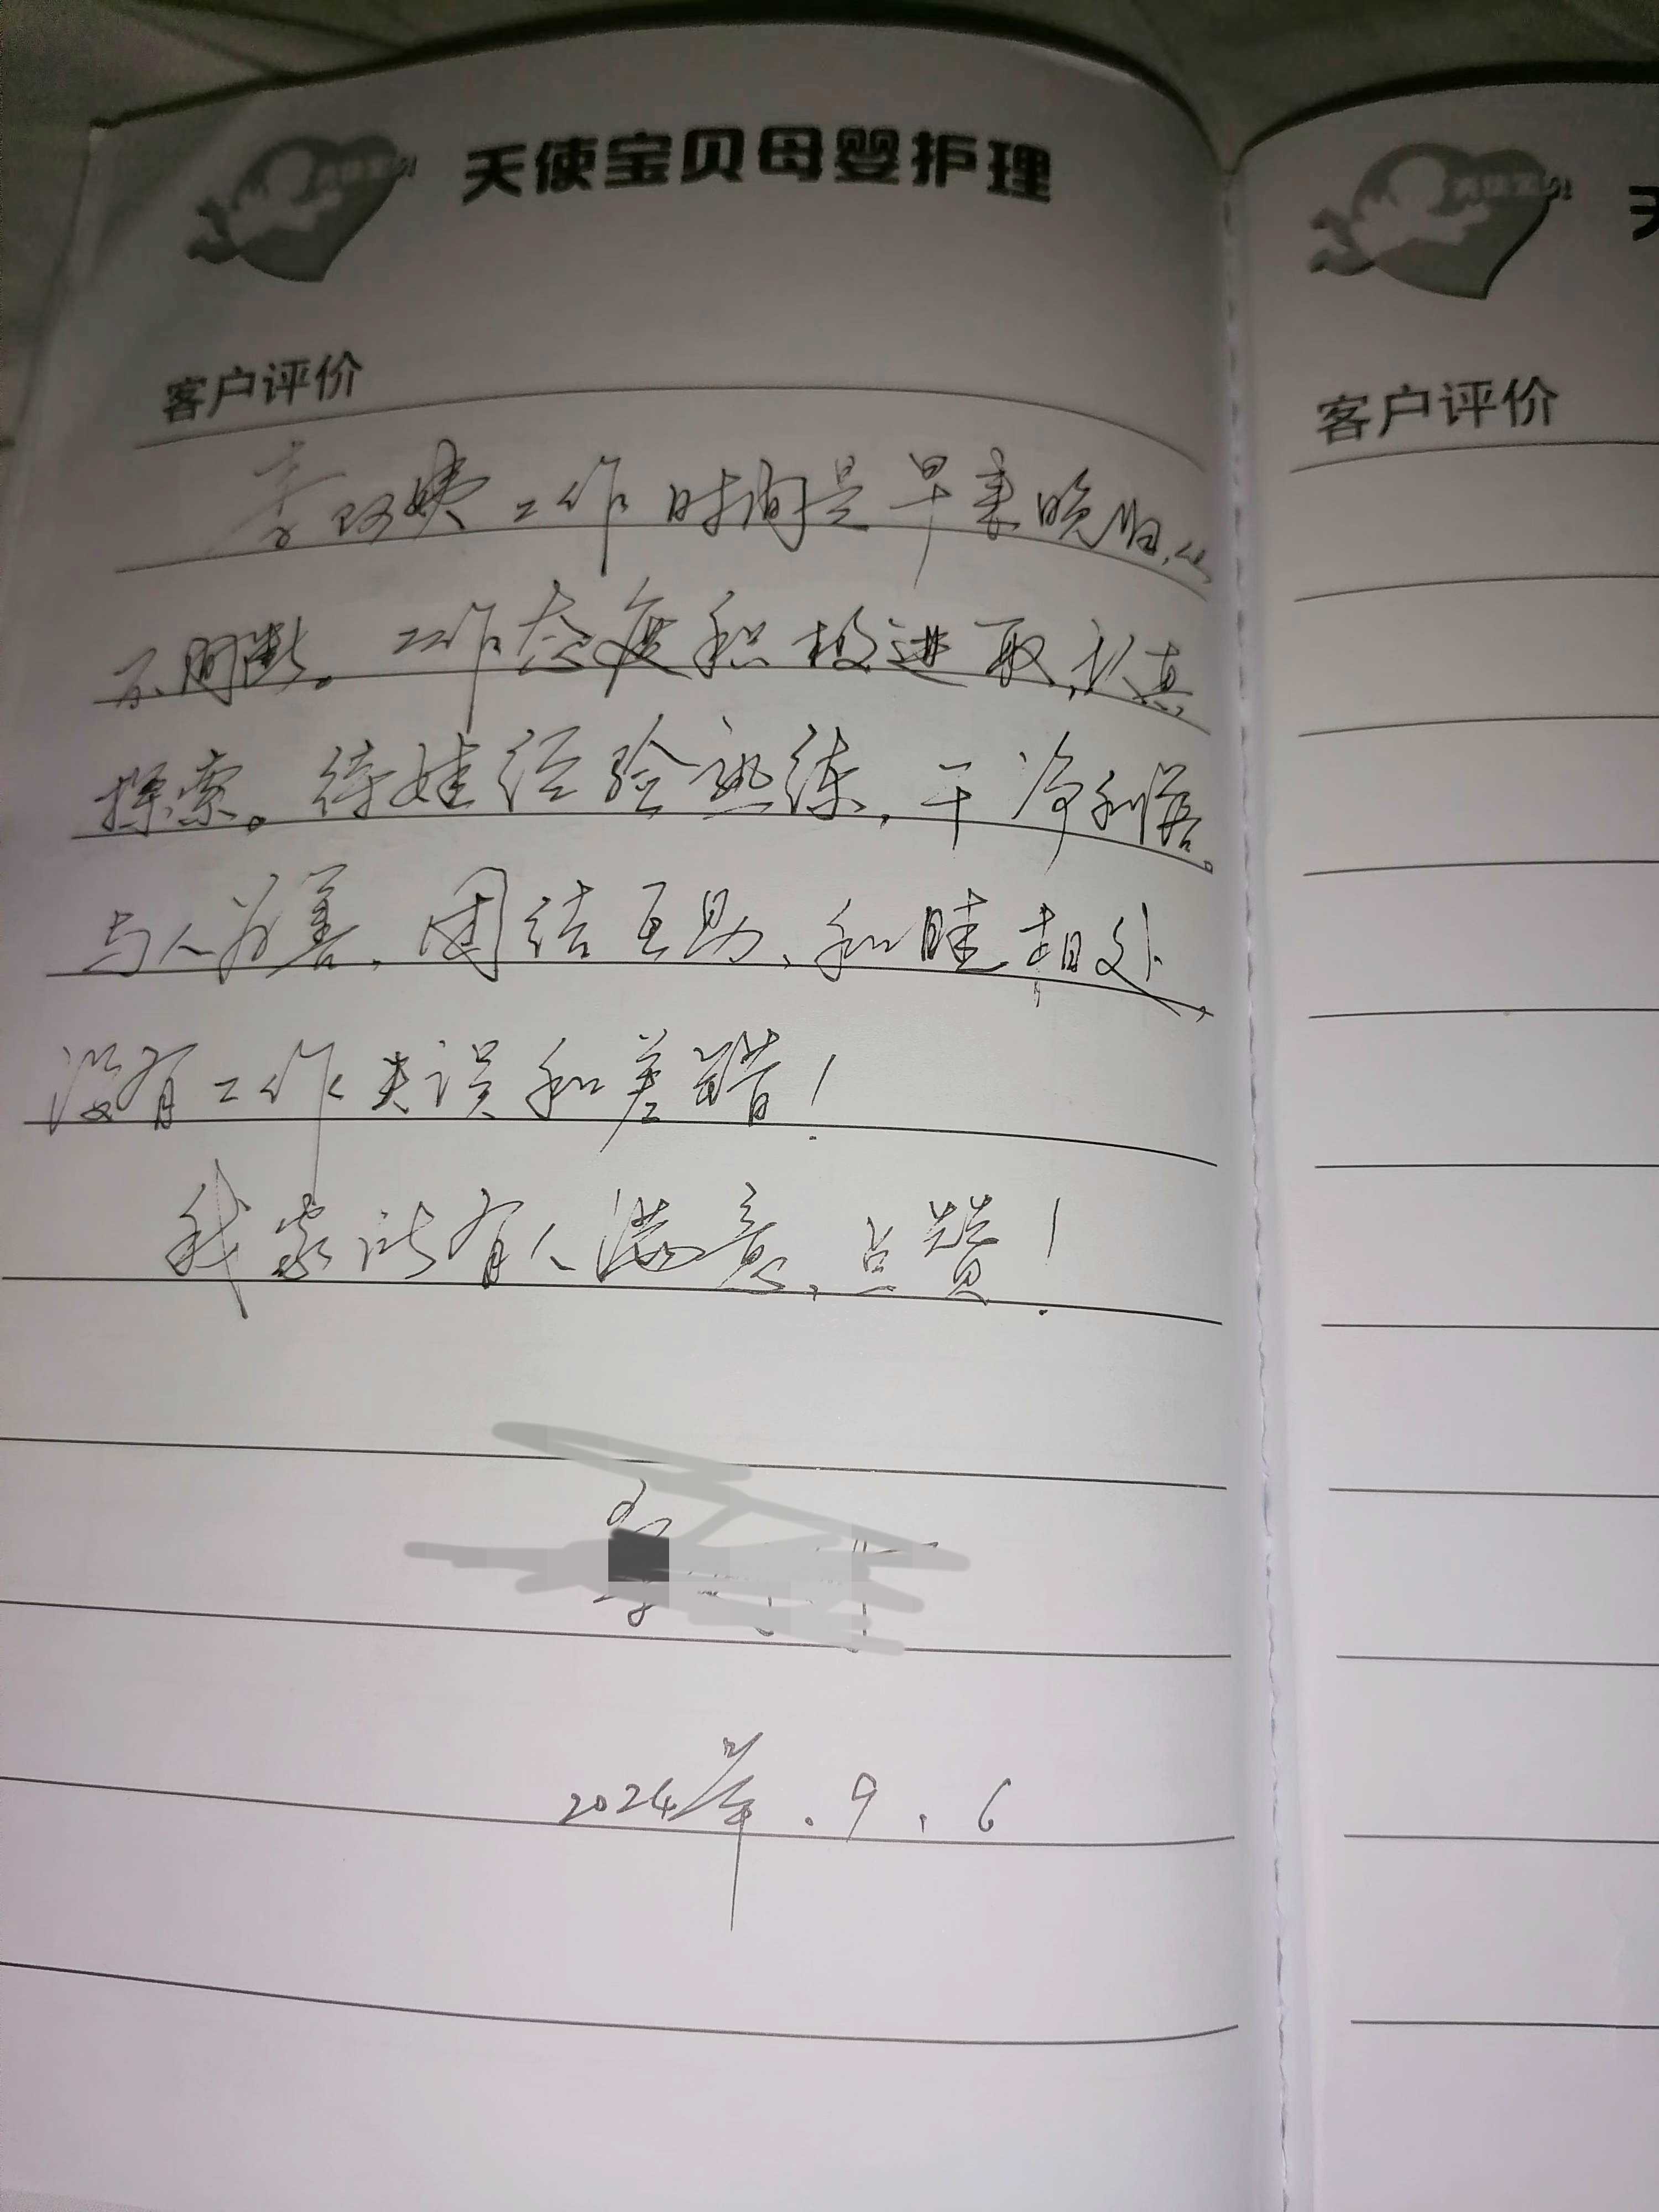 天使宝贝母婴护理
客户评价
李阿姨工作时间是早来晚归,从
不间断。工作态度积极进取,认真
探索。待娃经验熟练,干净利落。
与人为善,团结互助,和睦相处,
没有工作失误和差错!
我家所有人满意,点赞!
2024年.9.6
天
客户评价